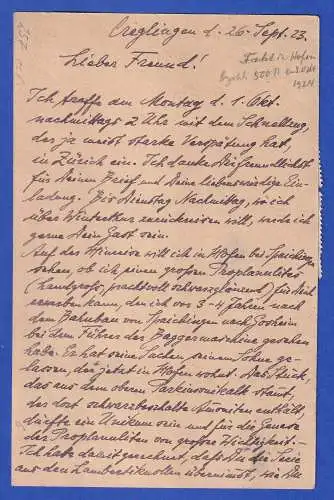 Creglingen d. 26. Sept. 23.
Lieber Freund!
Ich treffe am Montag d. 1. Okt.
nachmittags 2 Uhr mit dem Schnellzug,
der ja meist starke Verspätung hat,
in Zürich ein. Ich danke Dir herzlichst
für Deinen Brief und Deine liebenswürdige Ein-
ladung. Bis Dienstag Nachmittag, wo ich
über Winterthur zurückreisen will, werde ich
gerne Dein Gast sein.
Auf der Hinreise will ich in Hofen bei Spaichingen
sehen, ob ich jenen großen Proplanulites
(handgroß, prachtvoll schwarzglänzend) für Dich
erwerben kann, den ich vor 3-4 Jahren nach
dem Bahnbau von Spaichingen nach Gosheim
bei dem Führer der Baggermaschine gesehen
habe. Er hat seine Sachen seinem Sohne ge-
lassen, der jetzt in Hofen wohnt. Das Stück,
das aus dem oberen Parkinsonikalk stammt,
der dort schwarzbeschalte Ammoniten enthält,
dürfte ein Unikum sein und für die Genese
der Proplanuliten von großer Wichtigkeit.
Ich habe damit gerechnet, daß Du die Serie
aus den Lambertiknollen übernimmst, wie Du